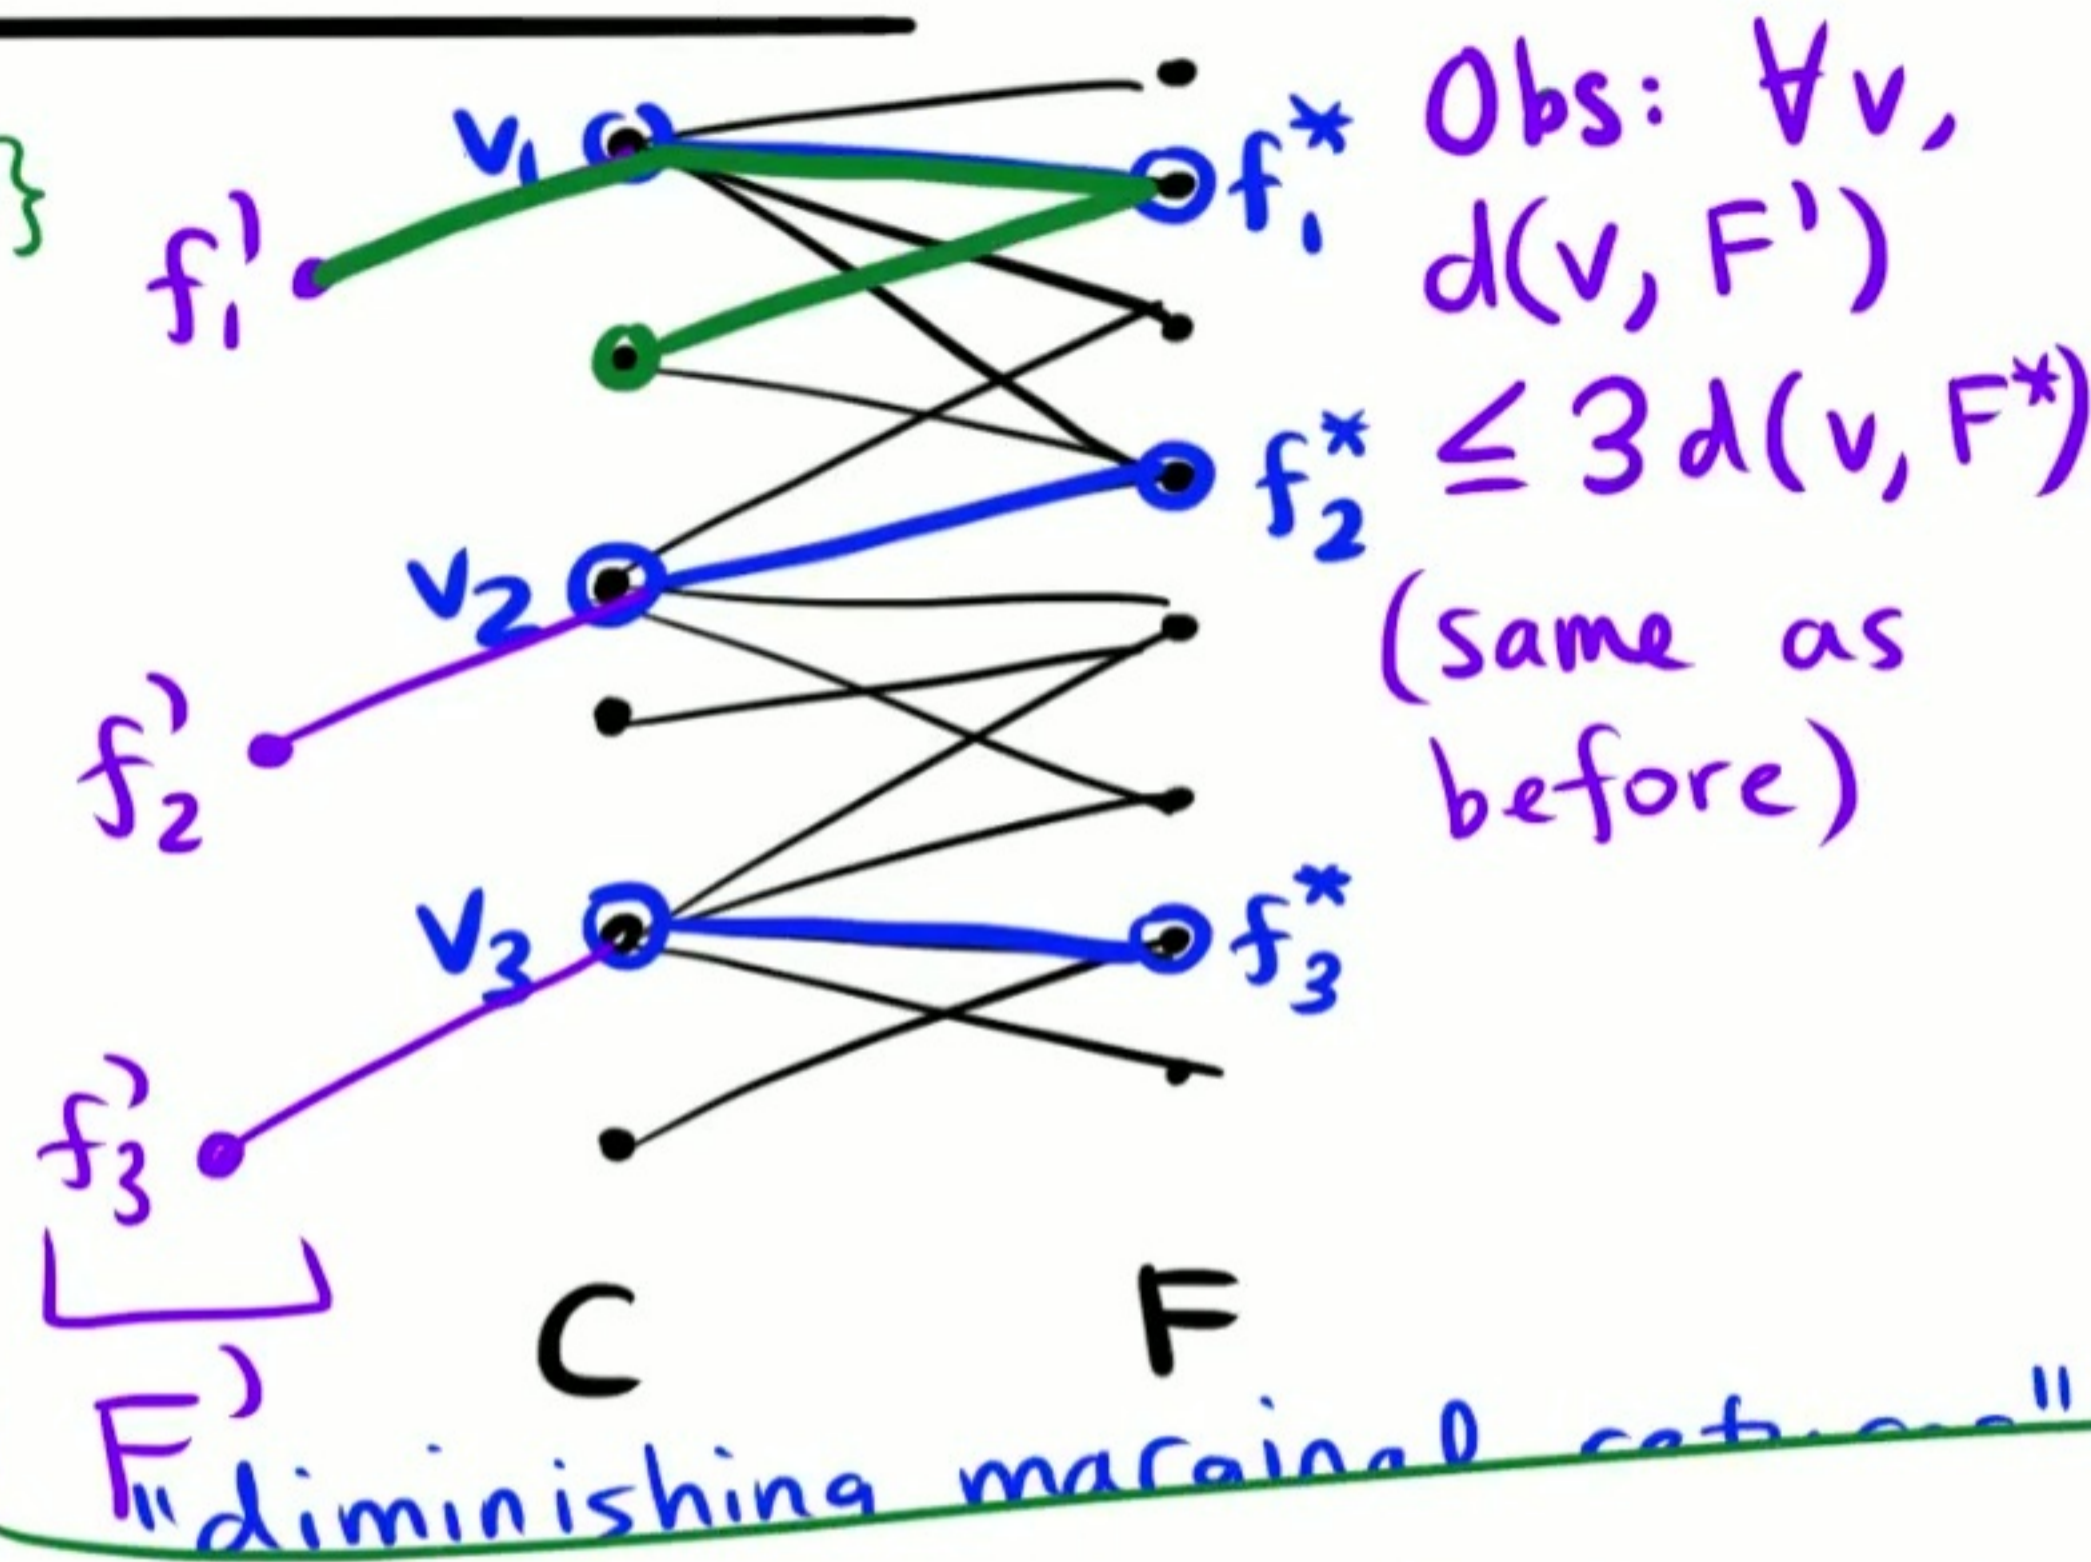 }
v₁
f₁'
f₁*
v₂
f₂'
f₂*
v₃
f₃'
f₃*
F'
C
F
Obs: ∀v,
d(v, F')
≤ 3d(v, F*)
(same as
before)
"diminishing marginal returns"